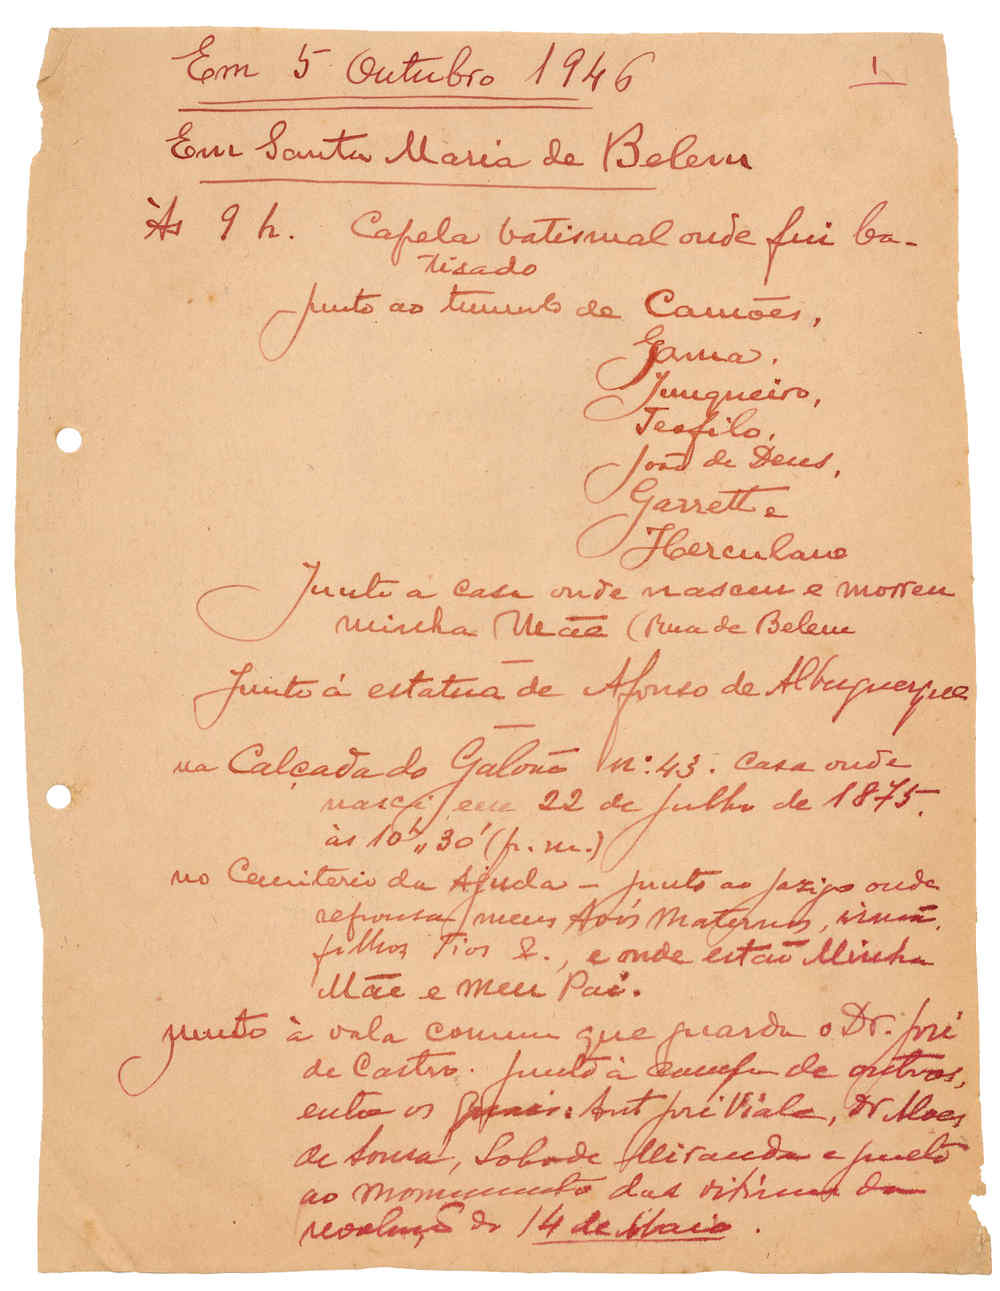 1
Em 5 Outubro 1946
Em Santa Maria de Belem
Às 9 h. Capela batismal onde fui ba-
tisado
Junto ao tumulo de Camões,
Gama,
Junqueiro,
Teofilo,
João de Deus,
Garrett e
Herculano
Junto à casa onde nasceu e morreu
minha Mãe (Rua de Belem
Junto á estatua de Afonso de Albuquerque
na Calçada do Galvão nº: 43. casa onde
nasci em 22 de Julho de 1875.
às 10h,,30' (p. m.)
no Cemiterio da Ajuda - junto ao jazigo onde
repousam meus Avós Maternos, irmã,
filhos Tios &., e onde estão Minha
Mãe e meu Pai.
junto à vala comum que guarda o Dr. José
de Castro. Junto à campa de outros,
entre os quais: Ant José Viale, Dr Alves
de Sousa, Lobo de Miranda e junto
ao monumento das vitimas da
revolução de 14 de Maio.